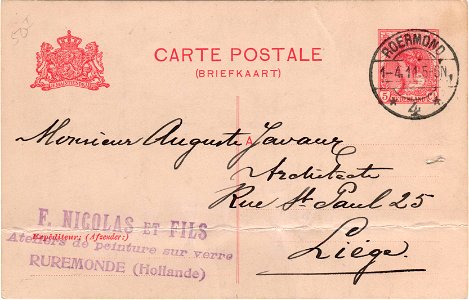 CARTE POSTALE
(BRIEFKAART)
ROERMOND
1-4.11.5-6N
4
5
Monsieur Auguste Javaux
A
Architecte
Rue St Paul 25
Liége.
F. NICOLAS ET FILS
Expéditeur: (Afzender:)
Ateliers de peinture sur verre
RUREMONDE (Hollande)